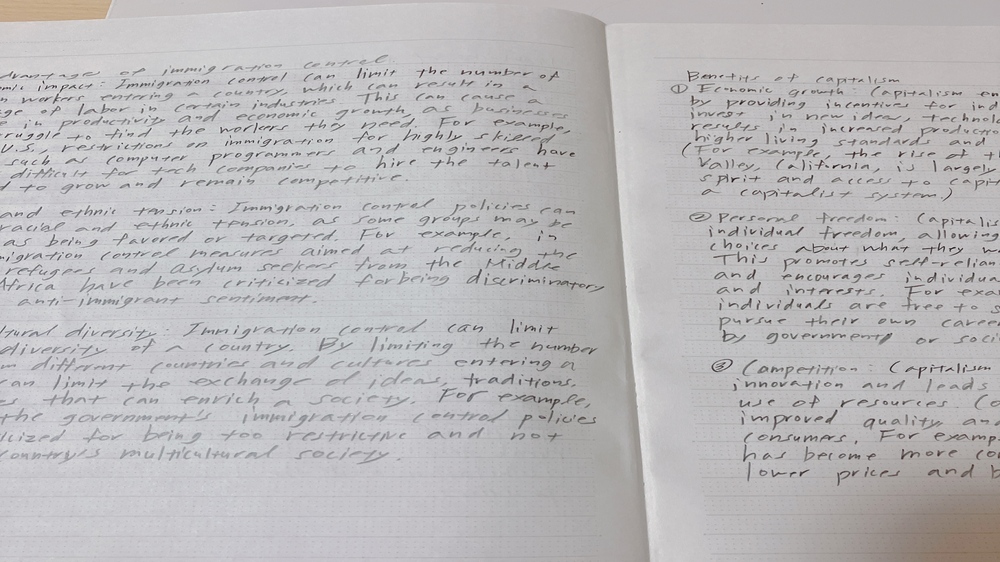 dvantage of immigration control
mic impact: Immigration control can limit the number of
n workers entering a country, which can result in a
ge of labor in certain industries. This can cause a
e in productivity and economic growth, as businesses
ruggle to find the workers they need. For example,
U.S., restrictions on immigration for highly skilled
such as computer programmers and engineers have
difficult for tech companies to hire the talent
d to grow and remain competitive.
and ethnic tension: Immigration control policies can
racial and ethnic tension, as some groups may be
as being favored or targeted. For example, in
migration control measures aimed at reducing the
refugees and asylum seekers from the Middle
Africa have been criticized for being discriminatory
anti-immigrant sentiment.
ltural diversity: Immigration control can limit
diversity of a country. By limiting the number
m different countries and cultures entering a
can limit the exchange of ideas, traditions,
es that can enrich a society. For example,
the government's immigration control policies
icized for being too restrictive and not
country's multicultural society.
Benefits of capitalism
① Economic growth: Capitalism en
by providing incentives for ind
invest in new idea, technolo
results in increased productio
higher living standards and
(For example, the rise of th
Valley, California, is largely
spirit and access to capit
a capitalist system.)
② Personal freedom: Capitalis
individual freedom, allowing
choices about what they w
This promotes self-relian
and encourages individua
and interests. For exa
individuals are free to s
pursue their own career
by government or soci
③ Competition: Capitalism
innovation and leads
use of resources. Co
improved quality and
consumers. For examp
has become more co
lower prices and b